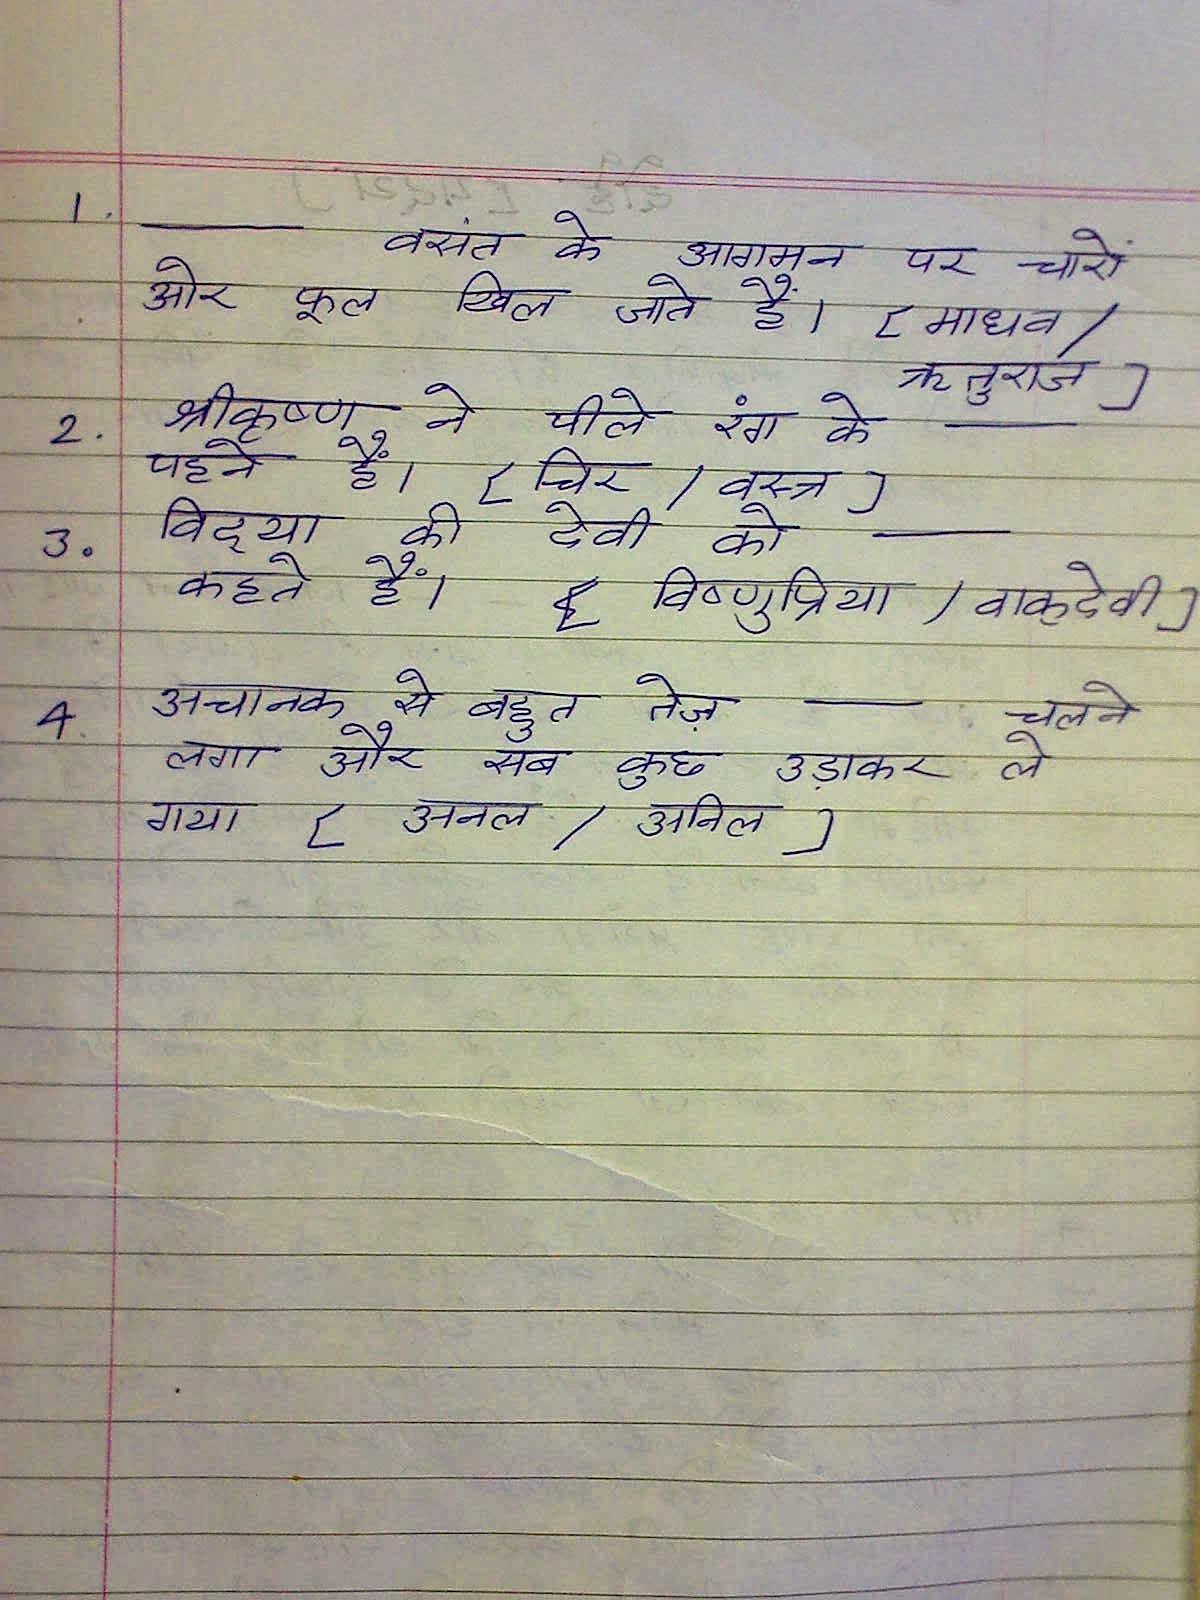 1. ____ वसंत के आगमन पर चारों
ओर फूल खिल जाते हैं। [ माधव /
ऋतुराज ]
2. श्रीकृष्ण ने पीले रंग के ____
पहने हैं। [ चिर / वस्त्र ]
3. विद्या की देवी को ____
कहते हैं। [ विष्णुप्रिया / वाक्देवी ]
4. अचानक से बहुत तेज़ ____ चलने
लगा और सब कुछ उड़ाकर ले
गया [ अनल / अनिल ]